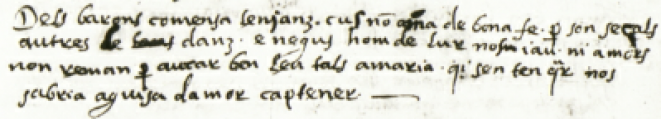 Dels barons comensa lenjanz. cus nō ama de bona fe. ꝑ son secals
autres le danz. e negus hom de lur nosni iau. ni amors
non reman ꝑ auear ben lea tals amaria. qi sen ten qͥr nos
sabria aguisa damor captener